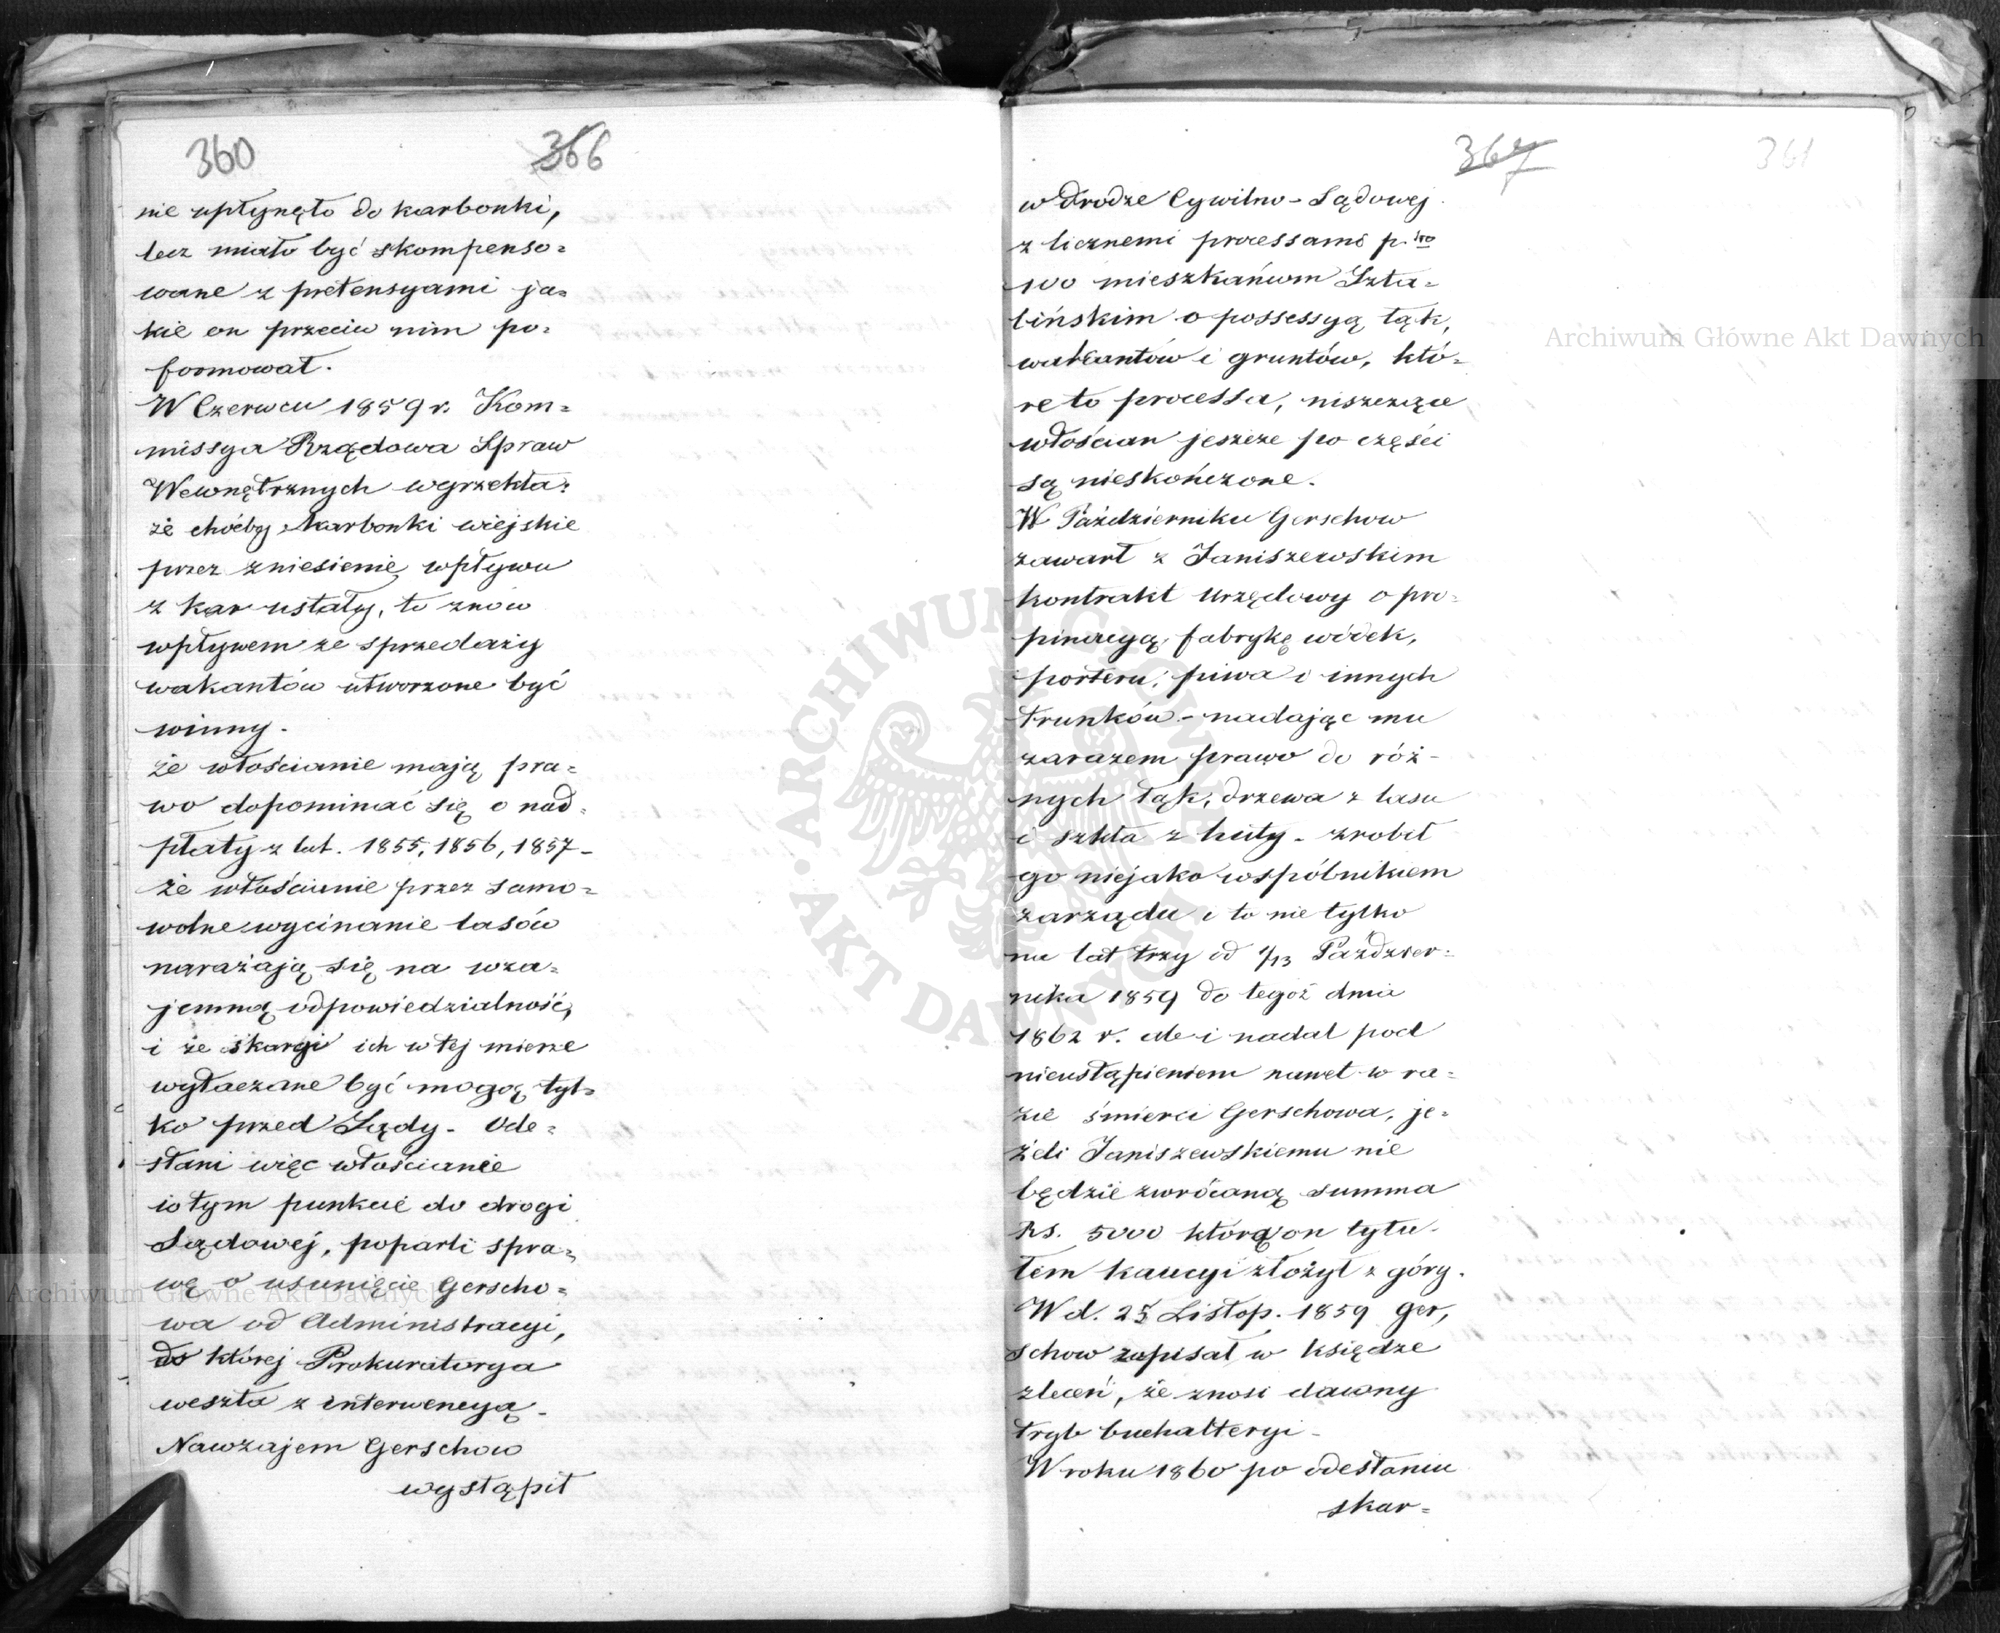 360 366
nie upłynęło do karbonki,
lecz miało być skompenso=
wane z pretensyami ja=
kie on przeciw nim po=
formował.
W Czerwcu 1859 r. Kom=
missya Rządowa Spraw
Wewnętrznych wyrzekła:
że choćby karbonki wiejskie
przez zniesienie wpływu
z kar ustały, to znów
wpływem ze sprzedaży
wakantów utworzone być
winny.
że włościanie mają pra=
wo dopominać się o nad=
płaty z lat. 1855, 1856, 1857 -
że włościanie przez samo=
wolne wycinanie lasów
narażają się na wza=
jemną odpowiedzialność,
i że skargi ich w tej mierze
wytaczane być mogą tyl=
ko przed Sądy - Ode=
słani więc włościanie
w tym punkcie do drogi
Sądowej, poparli spra=
wę o usunięcie Gerscho=
wa od Administracyi,
do której Prokuratorya
weszła z interwencyą -
Nawzajem Gerschow
wystąpił
367 361
w drodze Cywilno-Sądowej
z licznemi processami p.ko
100 mieszkańcom Szta=
bińskim o possessyą łąk,
wakantów i gruntów, któ=
re to processa, niszcząc
włościan jeszcze po części
są nieskończone.
W Październiku Gerschow
zawarł z Janiszewskim
kontrakt urzędowy o pro=
pinacyą, fabrykę wódek,
porteru, piwa i innych
trunków - nadając mu
zarazem prawo do róż-
nych łąk, drzewa z lasu
i szkła z huty - zrobił
go niejako wspólnikiem
zarządu i to nie tylko
na lat trzy od 1/13 Paździer=
nika 1859 do tegoż dnia
1862 r. ale i nadal pod
nieustąpieniem nawet w ra=
zie śmierci Gerschowa, je=
żeli Janiszewskiemu nie
będzie zwróconą summa
Rs. 5000 którą on tytu-
łem kaucyi złożył z góry.
W d. 25 Listop. 1859 Ger,
schow zapisał w księdze
zleceń, że znosi dawny
tryb buchalteryi -
W roku 1860 po odesłaniu
skar=
Archiwum Główne Akt Dawnych
Archiwum Główne Akt Dawnych
ARCHIWUM GŁÓWNE · AKT DAWNYCH ·